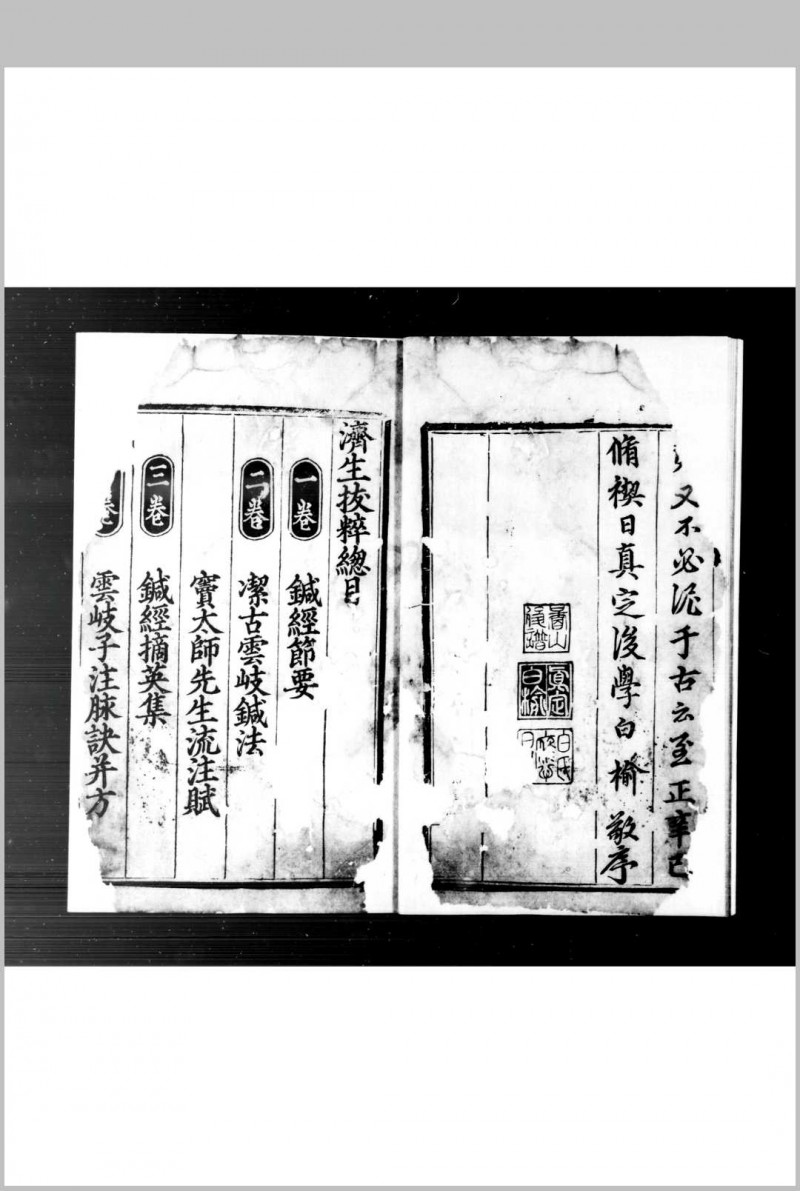 又不必泥于古云至正辛巳
脩禊日真定後學白榆敬序
真定白榆
濟生拔粹總目
一卷
鍼經節要
二卷
潔古雲岐鍼法
竇太師先生流注賦
三卷
鍼經摘英集
卷
雲岐子注脉訣并方